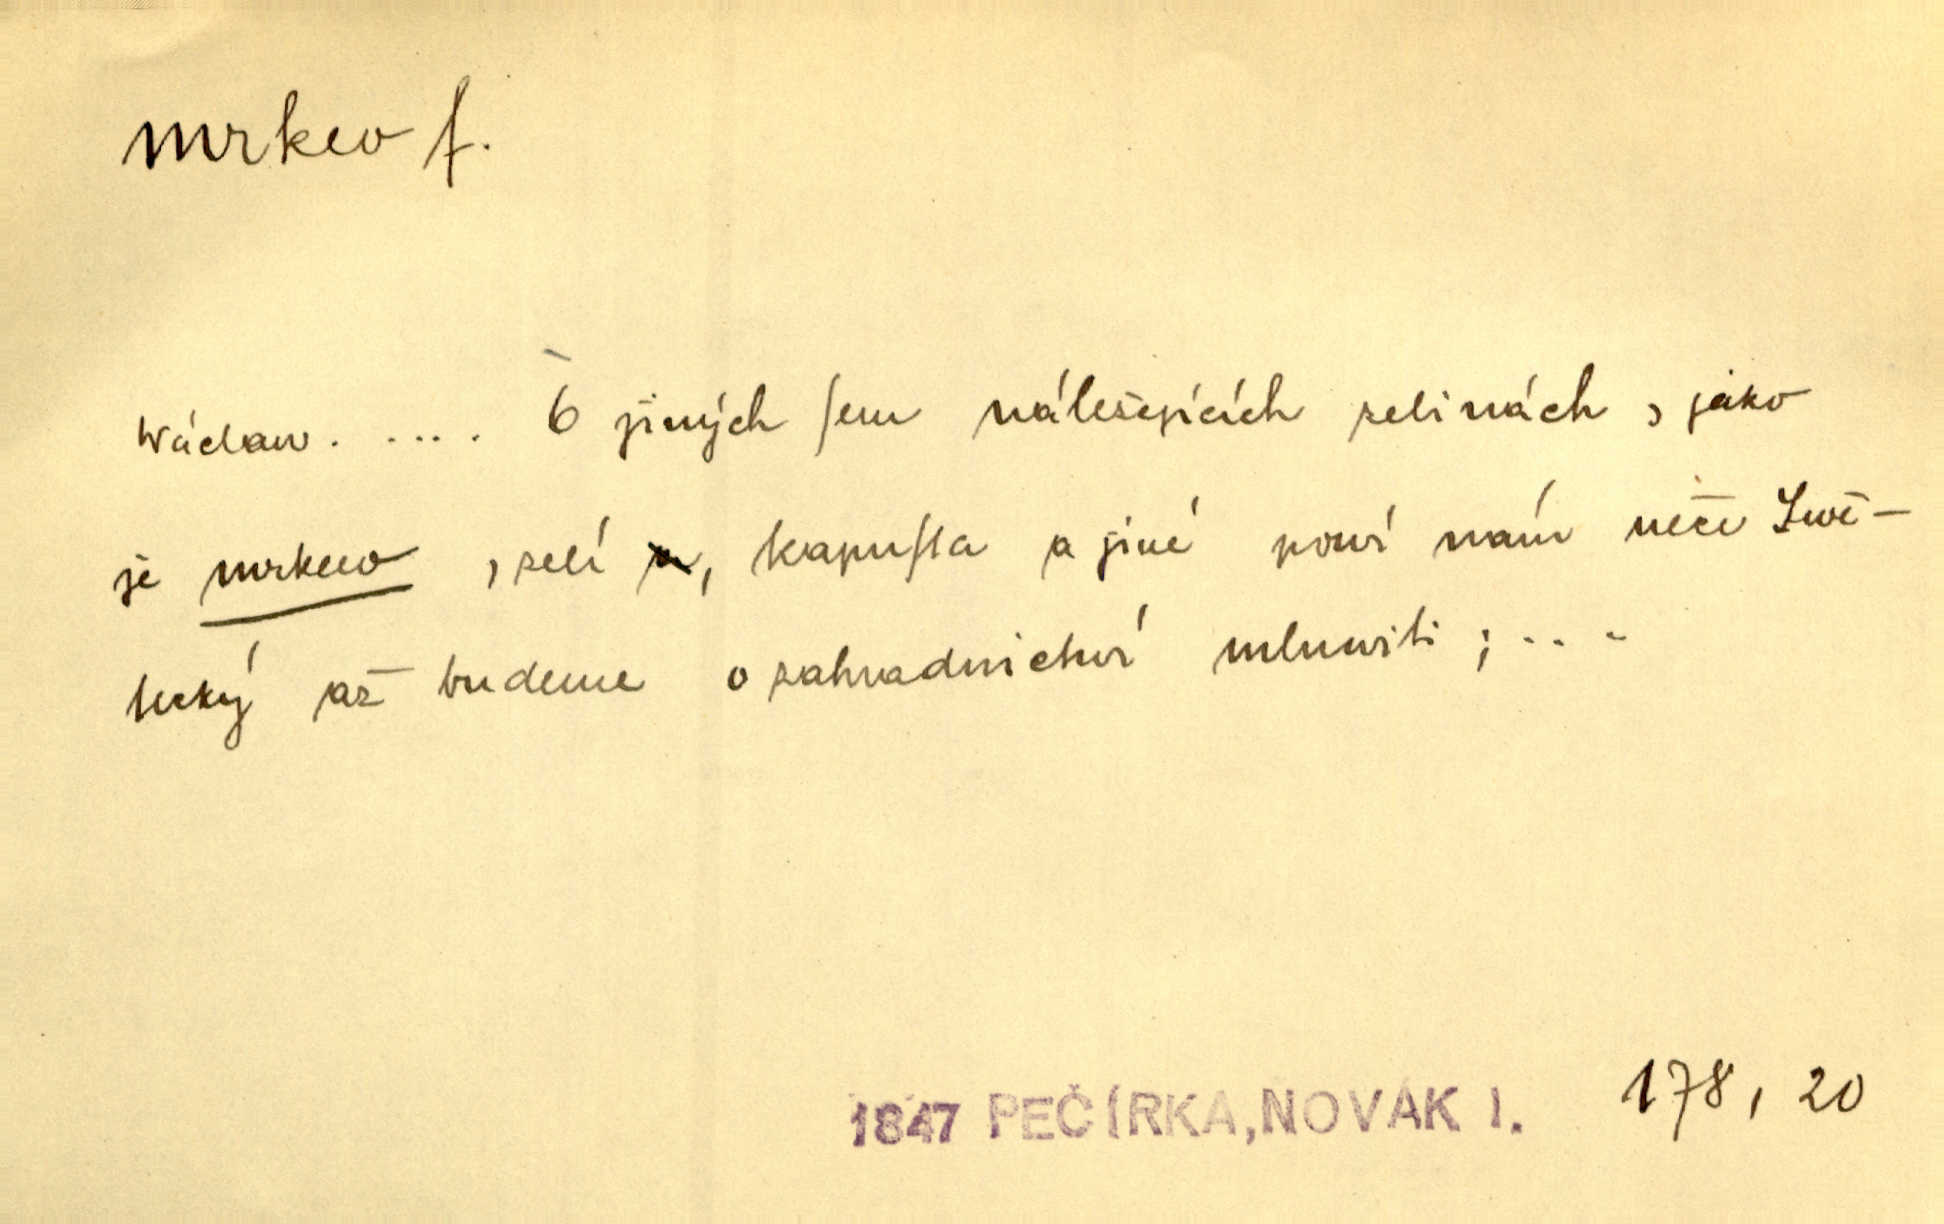 mrkev f.
Wáclaw. .... O jiných sem náležejících zelinách, jako
je mrkew, zelí, kapusta a jiné poví nám něco Swě-
tecký až budeme o zahradnictví mluwiti; ...
1847 PEČÍRKA, NOVÁK I. 178, 20